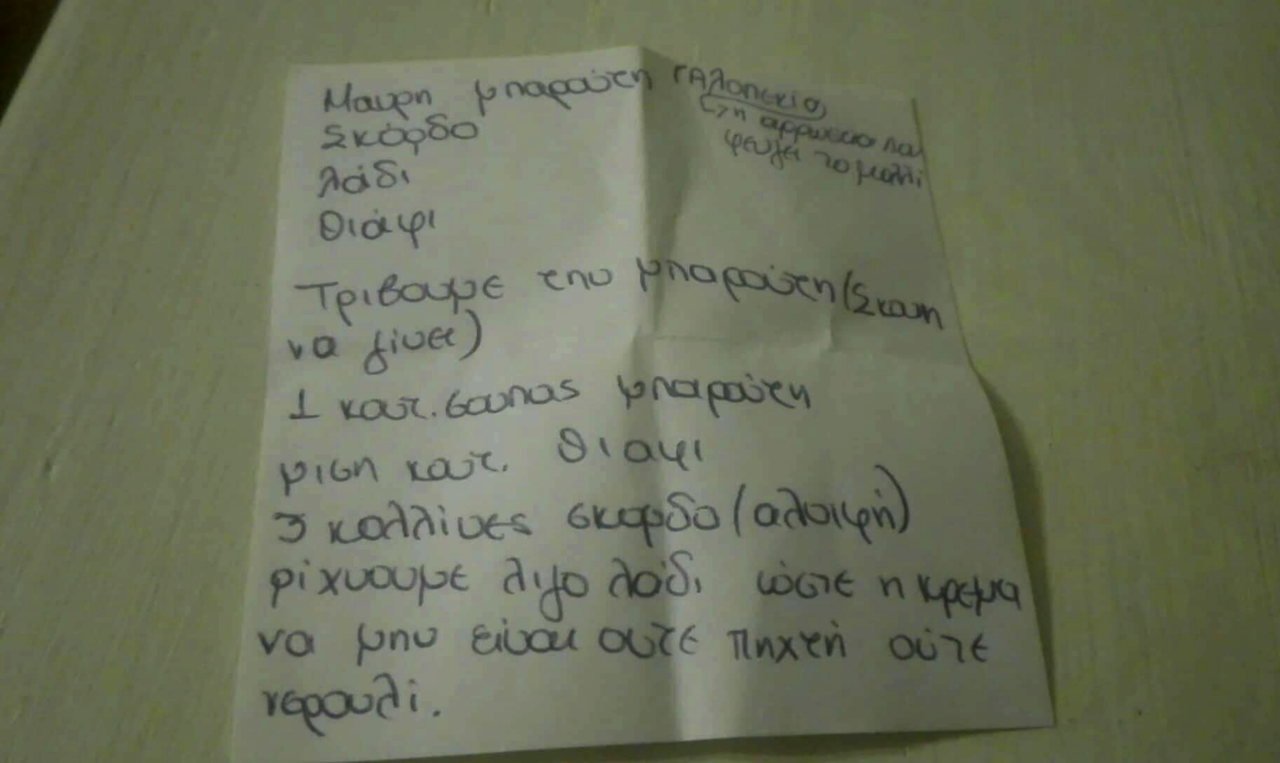 Μαυρη μπαρούτη (Αλοπεκία)
Σκόρδο
Λάδι
Θιάφι
(τη αρρωστια που
φευγει το μαλλί
Τριβουμε την μπαρούτη (Σκονη
να γίνει)
1 κουτ. σουπας μπαρούτη
μιση κουτ. θιαφι
3 κολλίνες σκορδο (αλοιφή)
ρίχνουμε λιγο λάδι ώστε η κρεμα
να μην είναι ουτε πηχτή ούτε
νερουλί.